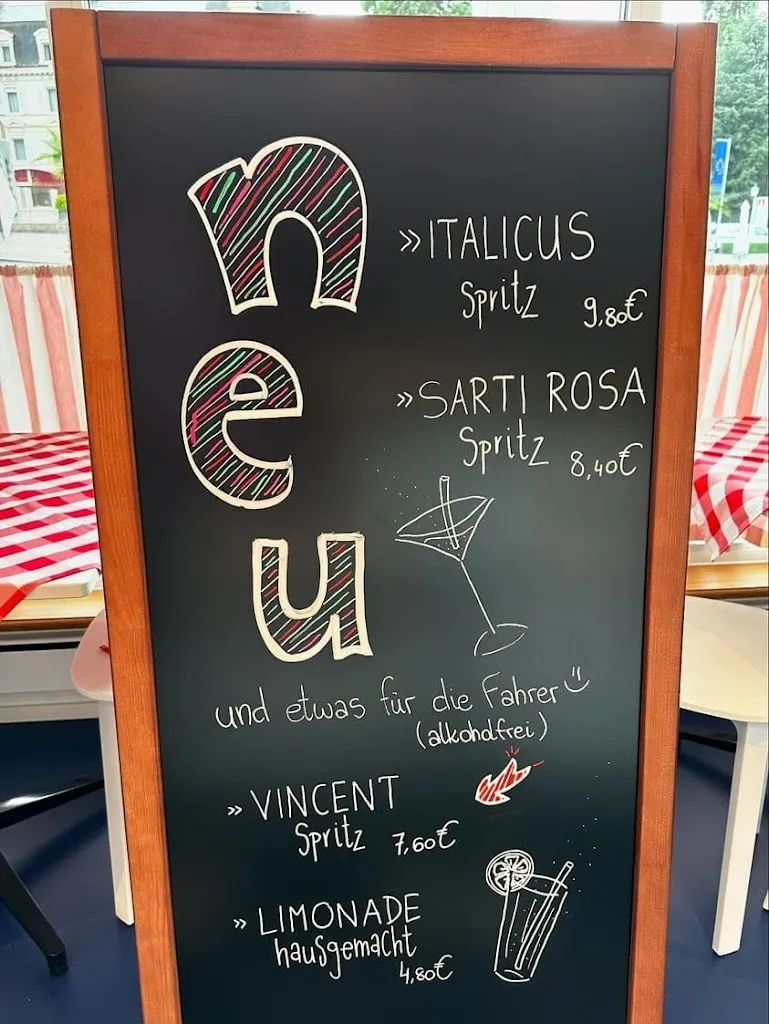 neu
»ITALICUS
Spritz 9,80€
»SARTI ROSA
Spritz 8,40€
und etwas für die Fahrer
(alkoholfrei)
» VINCENT
Spritz 7,60€
» LIMONADE
hausgemacht
4,80€